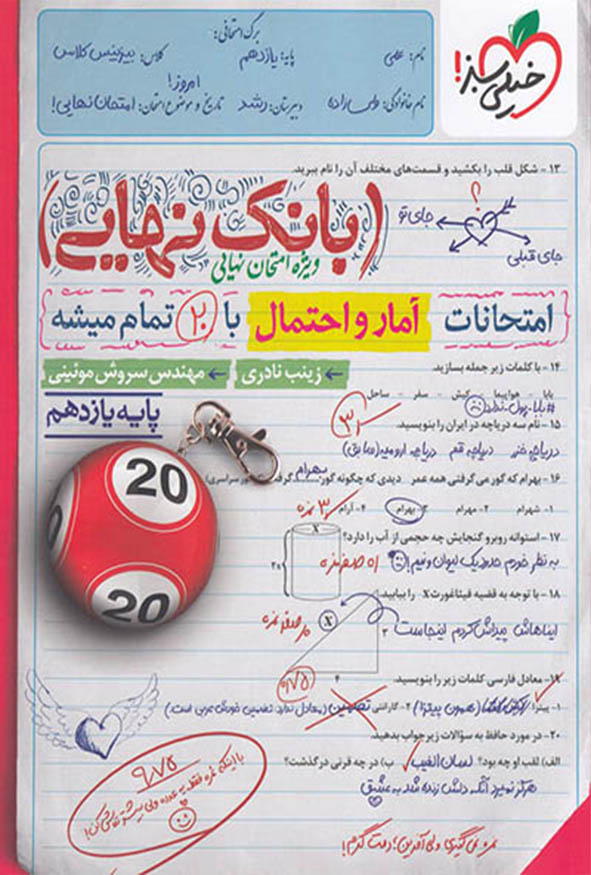 خیلی سبز!
برگ امتحانی:
نام: علی
پایه: یازدهم
کلاس: بیزینس کلاس
امروز!
نام خانوادگی: ولی زاده
دبیرستان: رشد
تاریخ و موضوع امتحان: امتحان نهایی!
۱۳ - شکل قلب را بکشید و قسمت‌های مختلف آن را نام ببرید.
؟
جای تو
جای قبلی
(بانک نهایی)
ویژه امتحان نهایی
امتحانات آمار و احتمال با ۲۰ تمام میشه
زینب نادری ← مهندس سروش موئینی ←
پایه یازدهم
۱۴ - با کلمات زیر جمله بسازید.
بابا - هواپیما - کیش - سفر - ساحل
#بابا_پول_نداره
۱۵ - نام سه دریاچه در ایران را بنویسید.
دریاچه خزر دریاچه قم دریاچه ارومیه (سابق)
۱۶ - بهرام که گور می گرفتی همه عمر دیدی که چگونه گور بهرام گرفت (کنکور سراسری)
۱- شهرام ۲- مهرام ۳- بهرام ۴- آرام
۳ نمره
۱۷ - استوانه روبرو گنجایش چه حجمی از آب را دارد؟
x
۲۰
به نظر خودم حدود یک لیوان و نیم!
۱۸ - با توجه به قضیه فیثاغورث X را بیابید.
X
۳
۴
ایناهاش پیداش کردم اینجاست
۰/۷۵
۱۹- معادل فارسی کلمات زیر را بنویسید.
۱- پیتزا (همون پیتزا) ۲- گارانتی تضمین (معادل ندارد تضمین خودش عربی است.)
۲۰- در مورد حافظ به سؤالات زیر جواب بدهید.
الف) لقب او چه بود؟ لسان الغیب ب) در چه قرنی درگذشت؟
هرگز نمیرد آنکه دلش زنده شد به عشق
۹/۷۵
با اینکه نمره فقط یه عدده ولی بیشتر تلاش کن!
نمره نمی‌گیری ولی آفرین؛ دمت گرم!
20
20